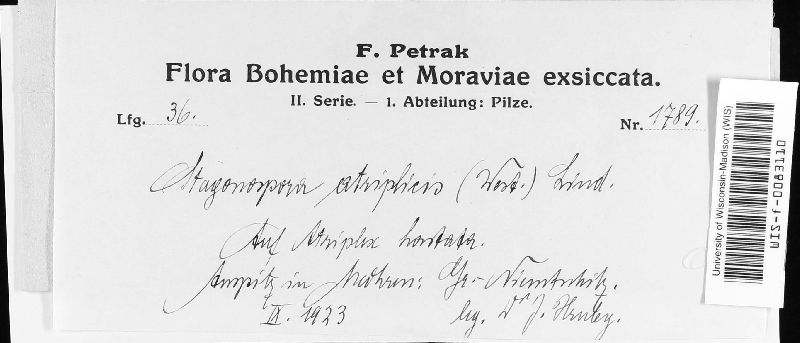 F. Petrak
Flora Bohemiae et Moraviae exsiccata.
II. Serie. — 1. Abteilung: Pilze.
Lfg. 36.
Nr. 1789.
Stagonospora atriplicis (West.) Lind.
Auf Atriplex hastata.
Auspitz in Mähren: Gr.-Niemtschitz.
IX. 1923
lig. Dr J. Hruby.
University of Wisconsin-Madison (WIS)
WIS-f-0083110